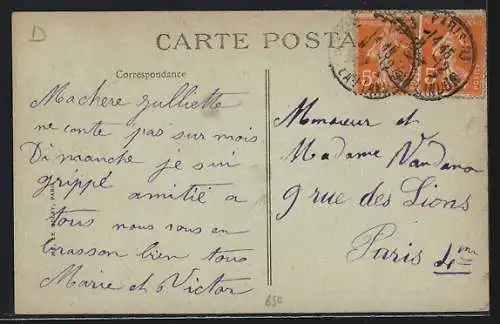 D
CARTE POSTA
Correspondance
Machere julliette
ne conte pas sur mois
Dimanche je sui
grippé amitié a
tous nous vous en
brasson bien tous
Marie et Victor
Monsieur et
Madame Vandana
9 rue des Lions
Paris 4me
650